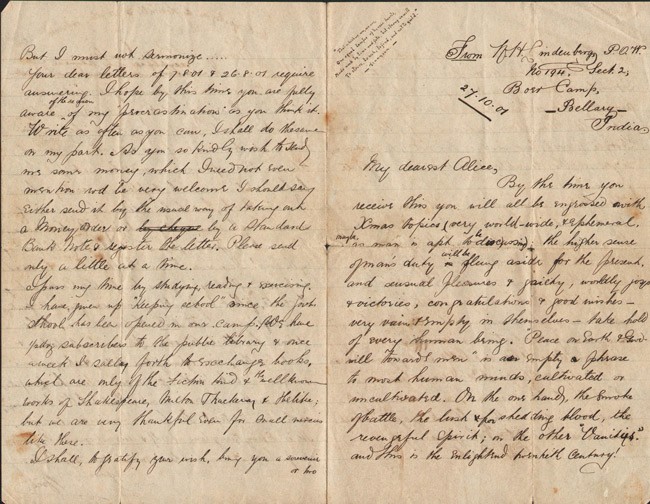 From H H Lindenberg, P.O.W.
No 194. Sect. 2,
Boer Camp,
Bellary
India
27.10.01
My dearest Alice,
By the time you
receive this you will all be engrossed with
Xmas topics (very world-wide, & ephemeral.
as man is apt to ; the higher sense
of man's duty will be flung aside for the present,
and sensual pleasures & gaiety, worldly joys
& victories, congratulations & good wishes —
very vain & empty in themselves — take hold
of every human being. "Peace on Earth & Good-
will towards men" is an empty phrase
to most human minds, cultivated or
uncultivated. On the one hand, the smoke
of battle, the lust for shedding blood, the
revengeful spirit; on the other "Vanities"
and this is the Enlightened twentieth Century!
But I must not sermonize.....
Your dear letters of 7.8.01 & 26.8.01 require
answering. I hope by this time you are fully
aware of the reason of my "procrastination" as you think it.
Write as often as you can, I shall do the same
on my part. As you so kindly wish to send
me some money, which I need not even
mention wd be very welcome I should say
Either send it by the usual way of taking out
a Money Order or by cheque by a Standard
Bank Note & register the letter. Please send
only a little at a time.
I pass my time by studying, reading & exercising.
I have given up "keeping school" since the
School has been opened in our camp. We have
subscribers to the public library & once
a week I sally forth to exchange books,
which are only of the fiction kind & the wellknown
works of Shakespeare, Milton Thackeray & the like;
but we are very thankful even for small mercies
like these.
I shall, to gratify your wish, bring you a souvenir
or two